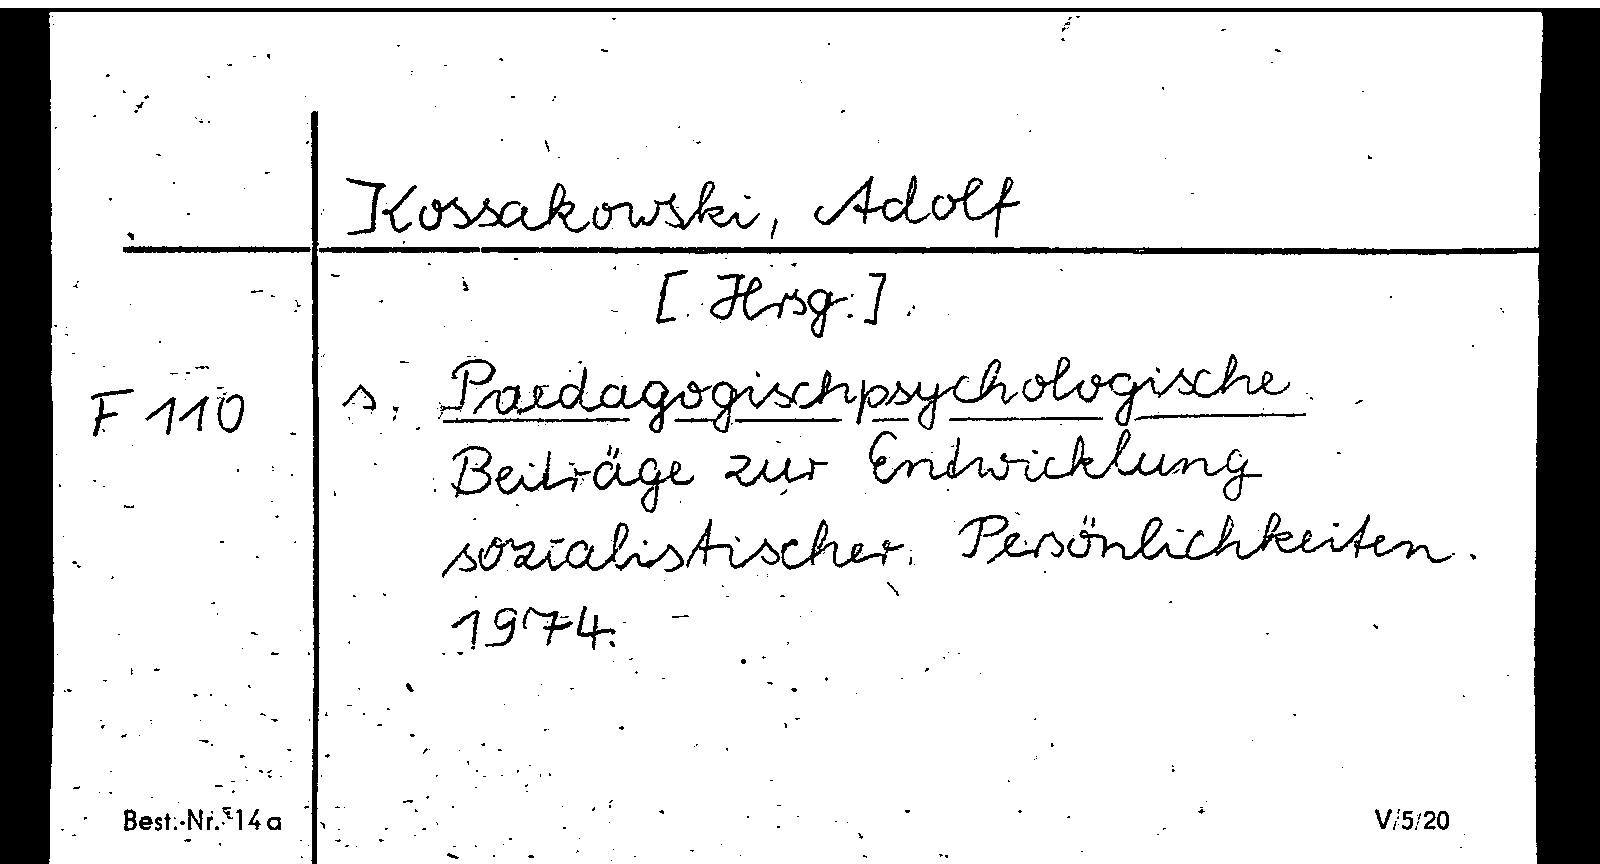 Kossakowski, Adolf
[Hrsg.]
F 110 s. Paedagogischpsychologische
Beiträge zur Entwicklung
sozialistischer Persönlichkeiten.
1974.
Best.-Nr. 14a V/5/20